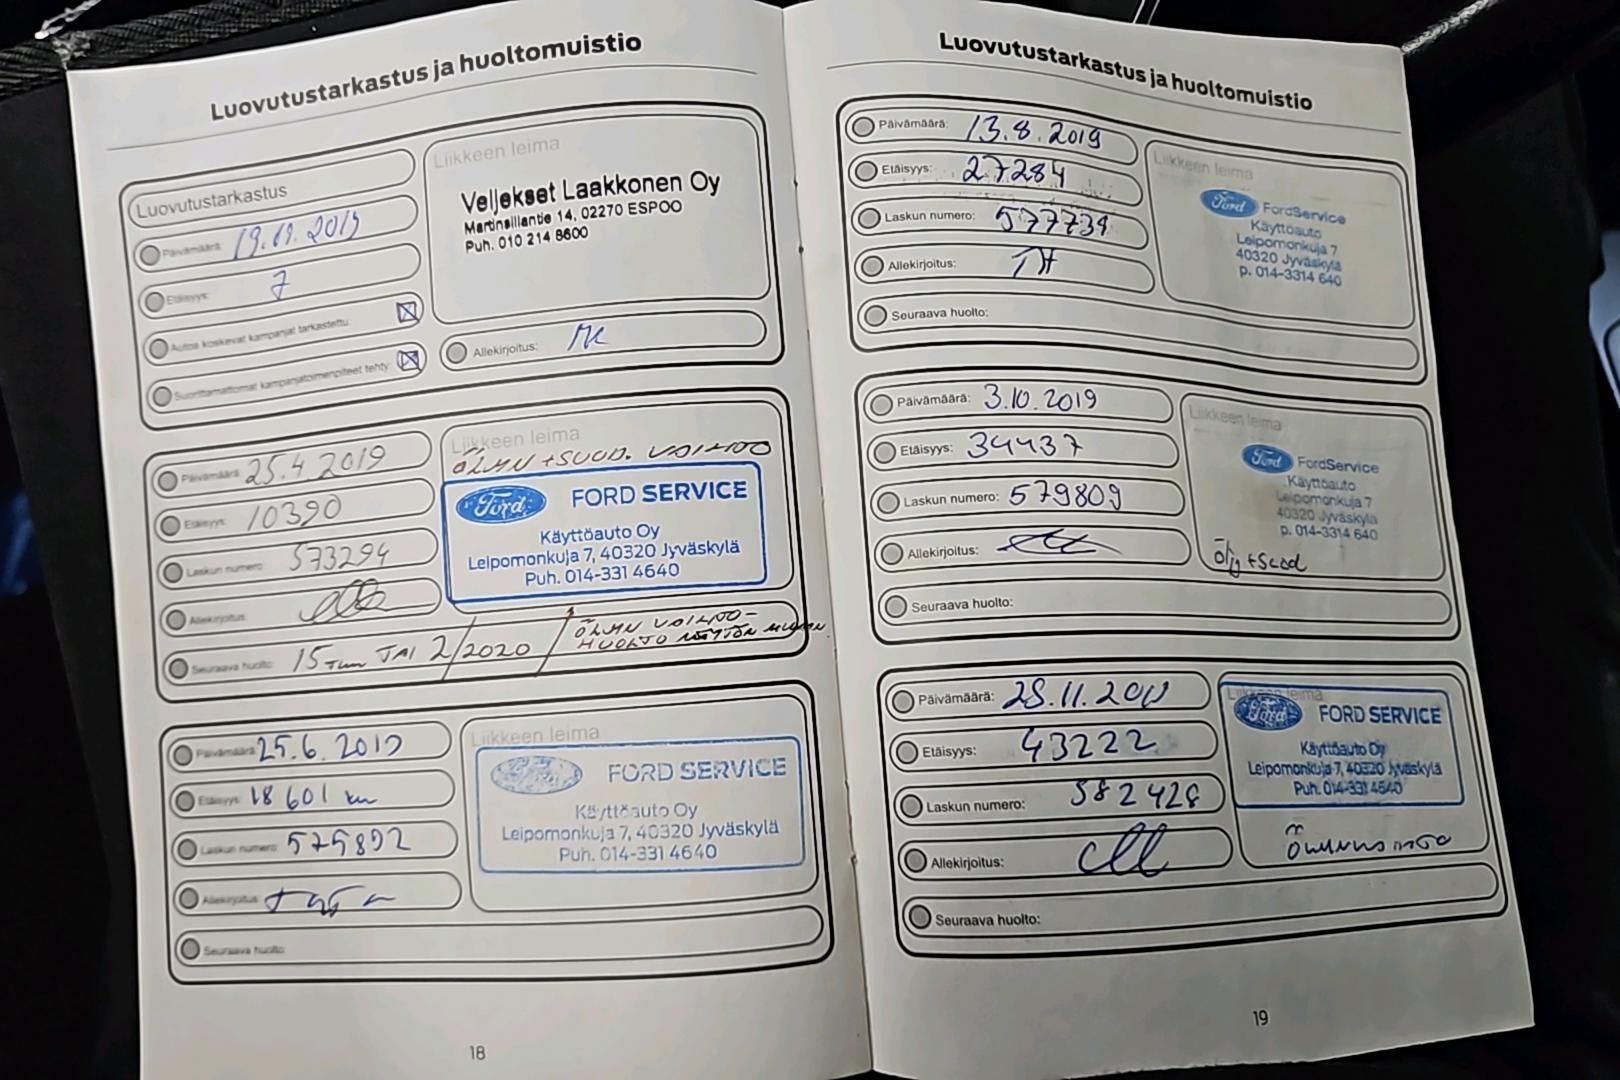 Luovutustarkastus ja huoltomuistio
Luovutustarkastus
Päivämäärä:
Etäisyys: 7
Autoa koskevat kampanjat tarkastettu:
Suorittamattomat kampanjatoimenpiteet tehty:
Liikkeen leima
Veljekset Laakkonen Oy
Martinsillantie 14, 02270 ESPOO
Puh. 010 214 8600
Allekirjoitus:
Päivämäärä: 25.4.2019
Etäisyys: 10390
Laskun numero: 573294
Allekirjoitus:
Liikkeen leima
ÖLJYN + SUOD. VAIHTO
Ford FORD SERVICE
Käyttöauto Oy
Leipomonkuja 7, 40320 Jyväskylä
Puh. 014-331 4640
Seuraava huolto: 15 Tkm TAI 2/2020 / ÖLJYN VAIHTO-
HUOLTO NÄYTÖN MUKAAN
Päivämäärä: 25.6.2019
Etäisyys: 18 601 km
Laskun numero: 575892
Allekirjoitus:
Liikkeen leima
FORD SERVICE
Käyttöauto Oy
Leipomonkuja 7, 40320 Jyväskylä
Puh. 014-331 4640
Seuraava huolto:
18
Luovutustarkastus ja huoltomuistio
Päivämäärä: 13.8.2019
Etäisyys: 27284
Laskun numero: 577739
Allekirjoitus: TH
Liikkeen leima
Ford FordService
Käyttöauto
Leipomonkuja 7
40320 Jyväskylä
p. 014-3314 640
Seuraava huolto:
Päivämäärä: 3.10.2019
Etäisyys: 34437
Laskun numero: 579809
Allekirjoitus:
Liikkeen leima
Ford FordService
Käyttöauto
Leipomonkuja 7
40320 Jyväskylä
p. 014-3314 640
Öljy + Suod
Seuraava huolto:
Päivämäärä:
Etäisyys: 43222
Laskun numero: 582428
Allekirjoitus:
Liikkeen leima
Ford FORD SERVICE
Käyttöauto Oy
Leipomonkuja 7, 40320 Jyväskylä
Puh. 014-331 4640
Seuraava huolto:
19